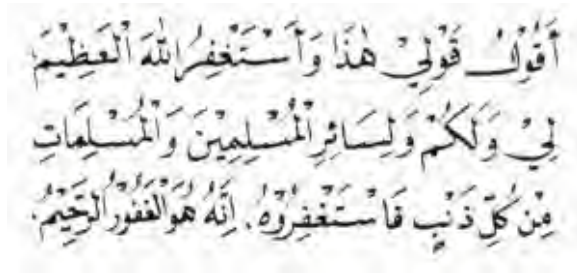 أَقُوْلُ قَوْلِيْ هٰذَا وَأَسْتَغْفِرُ اللهَ الْعَظِيْمَ
لِيْ وَلَكُمْ وَلِسَائِرِ الْمُسْلِمِيْنَ وَالْمُسْلِمَاتِ
مِنْ كُلِّ ذَنْبٍ فَاسْتَغْفِرُوْهُ. اِنَّهُ هُوَ الْغَفُوْرُ الرَّحِيْمُ.